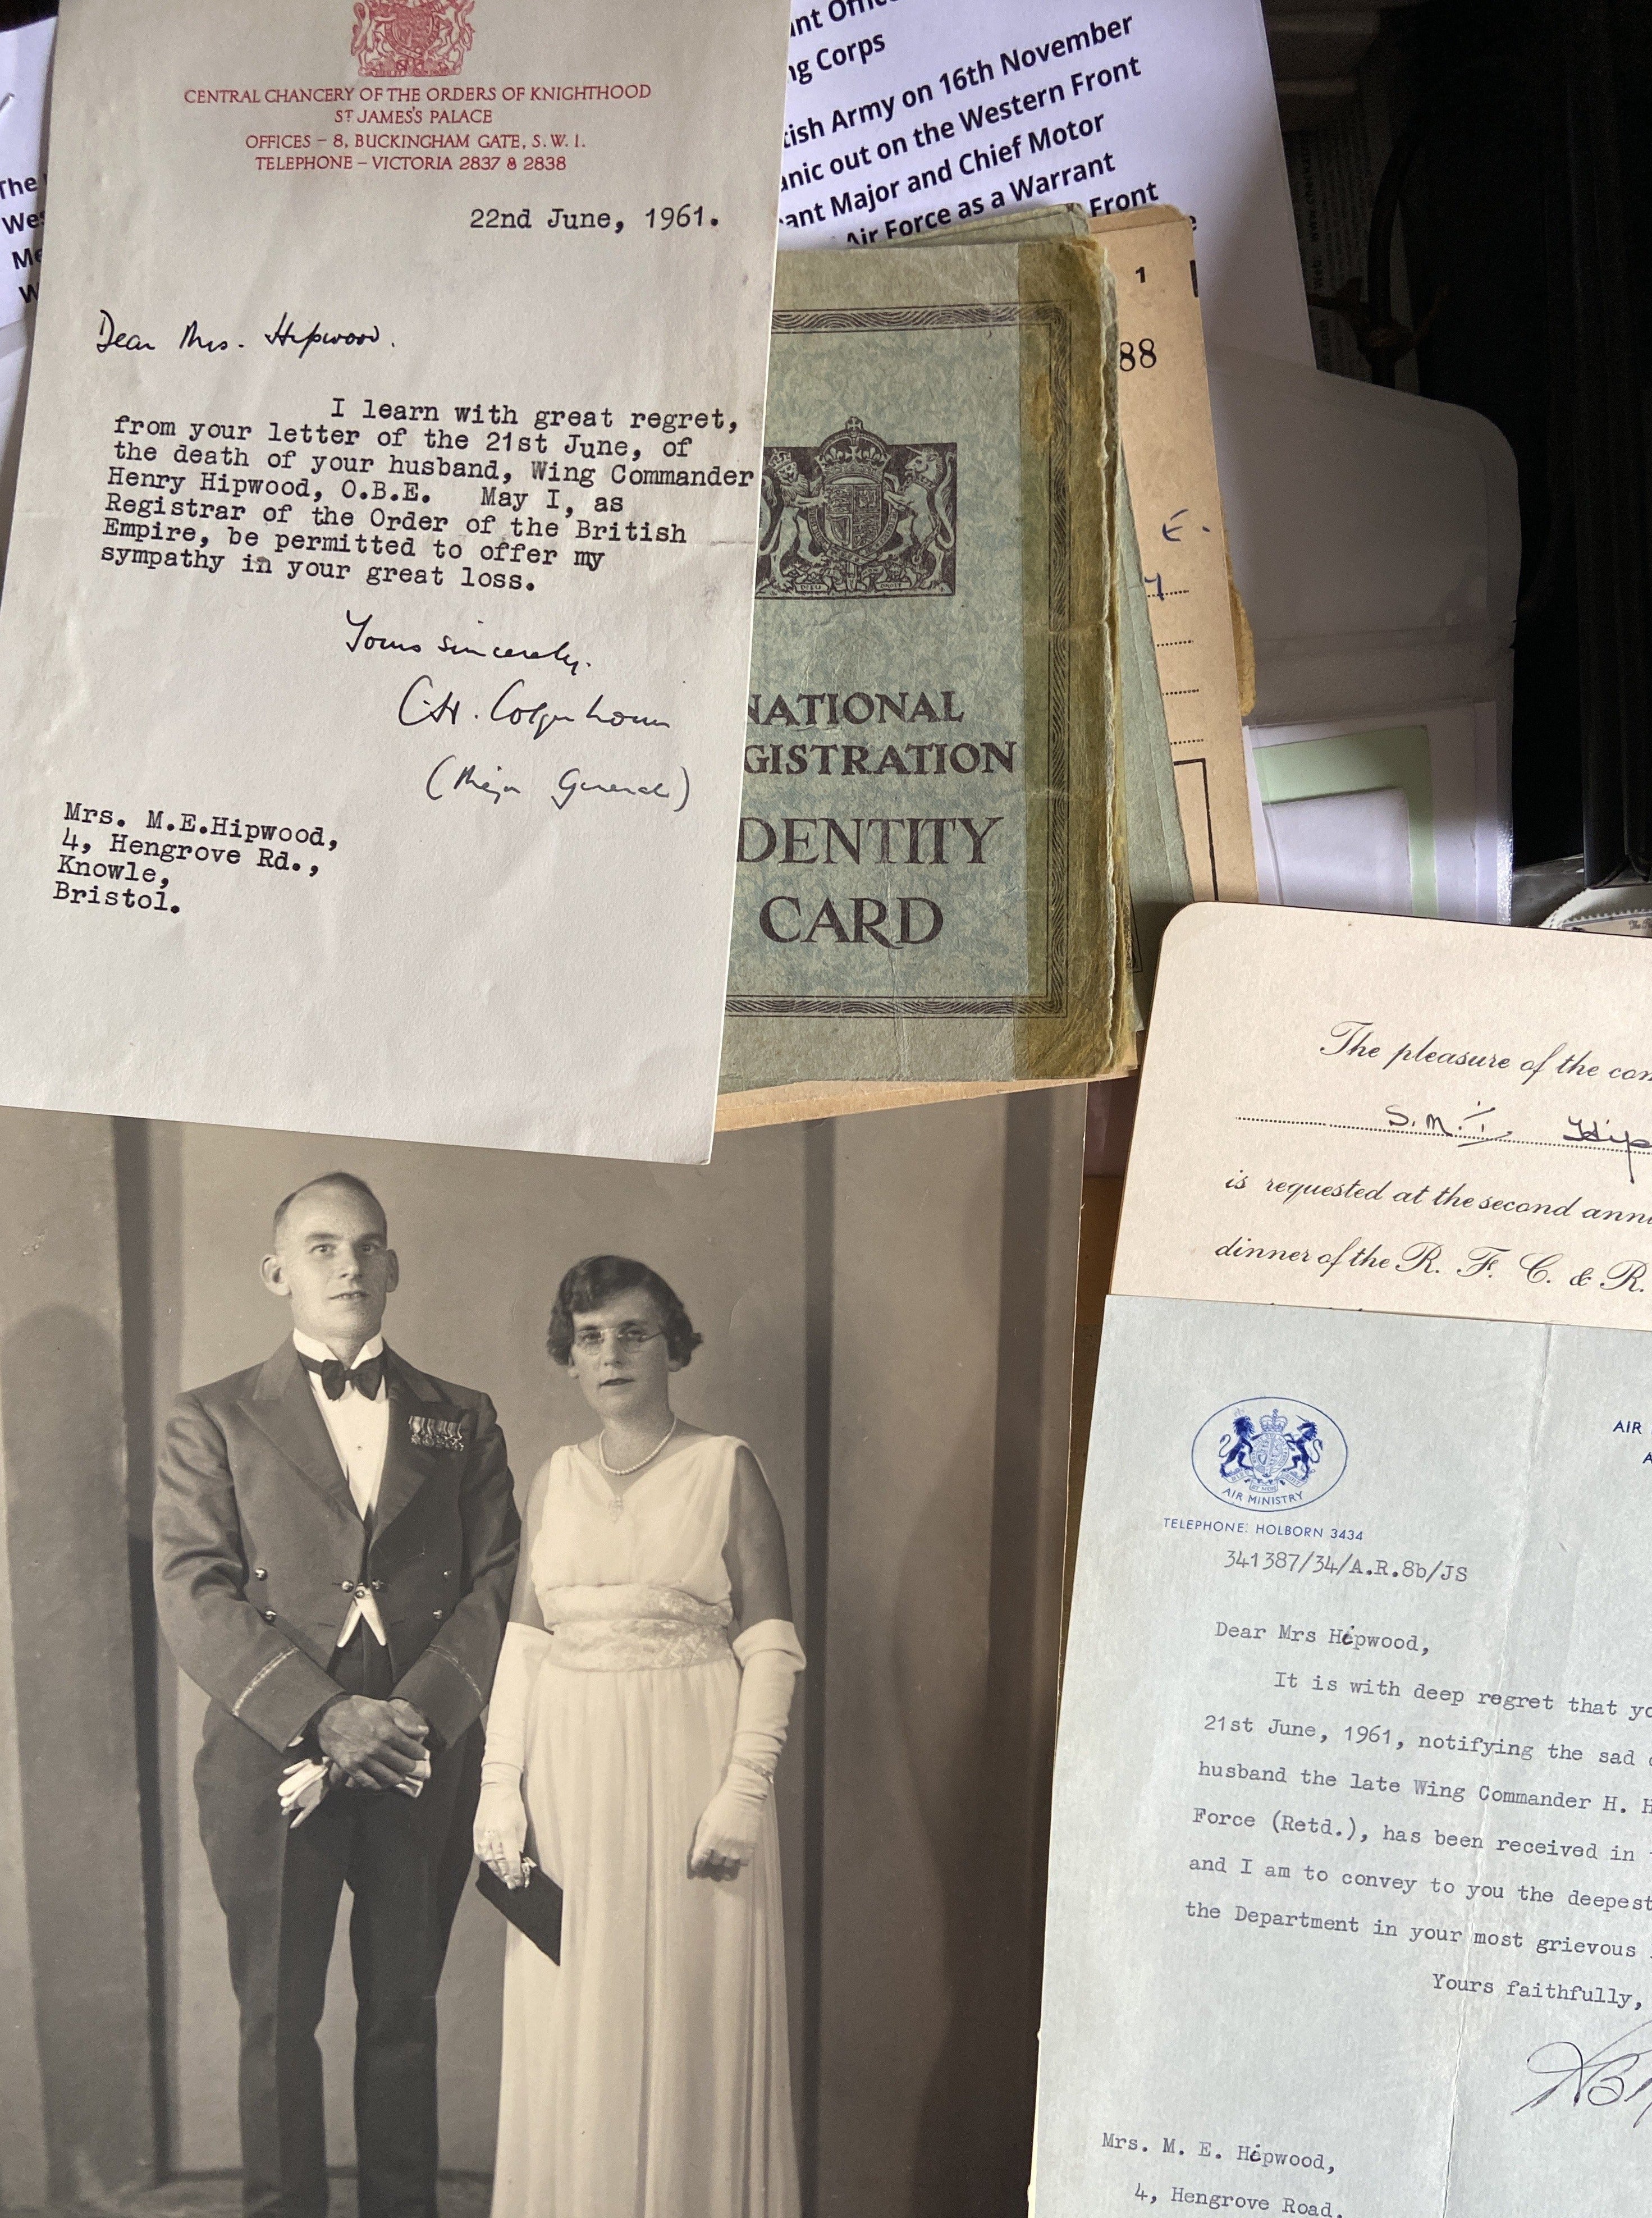 CENTRAL CHANCERY OF THE ORDERS OF KNIGHTHOOD
ST JAMES'S PALACE
OFFICES – 8, BUCKINGHAM GATE, S.W.1.
TELEPHONE – VICTORIA 2837 & 2838
22nd June, 1961.
Dear Mrs. Hipwood.
I learn with great regret,
from your letter of the 21st June, of
the death of your husband, Wing Commander
Henry Hipwood, O.B.E. May I, as
Registrar of the Order of the British
Empire, be permitted to offer my
sympathy in your great loss.
Yours sincerely.
(Major General)
Mrs. M.E.Hipwood,
4, Hengrove Rd.,
Knowle,
Bristol.
The
ng Corps
tish Army on 16th November
anic out on the Western Front
ant Major and Chief Motor
Air Force as a Warrant
Front
1
88
E.
NATIONAL
GISTRATION
DENTITY
CARD
The pleasure of the com
S.M.1 Hip
is requested at the second annu
dinner of the R. F. C. & R.
AIR MINISTRY
AIR
A
TELEPHONE: HOLBORN 3434
341387/34/A.R.8b/JS
Dear Mrs Hipwood,
It is with deep regret that yo
21st June, 1961, notifying the sad
husband the late Wing Commander H. H
Force (Retd.), has been received in
and I am to convey to you the deepest
the Department in your most grievous
Yours faithfully,
Mrs. M. E. Hipwood,
4, Hengrove Road.